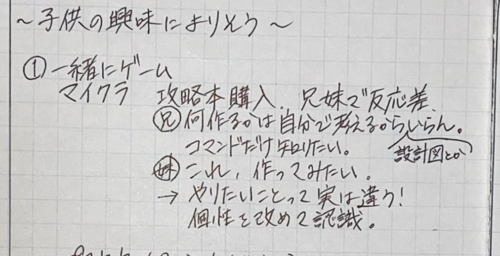 ～子供の興味によりそう～
① 一緒にゲーム
マイクラ 攻略本購入、兄妹で反応差、
兄 何作るかは自分で考えるからいらん。
設計図とか
コマンドだけ知りたい。
妹 これ、作ってみたい。
→ やりたいことって実は違う!
個性を改めて認識。